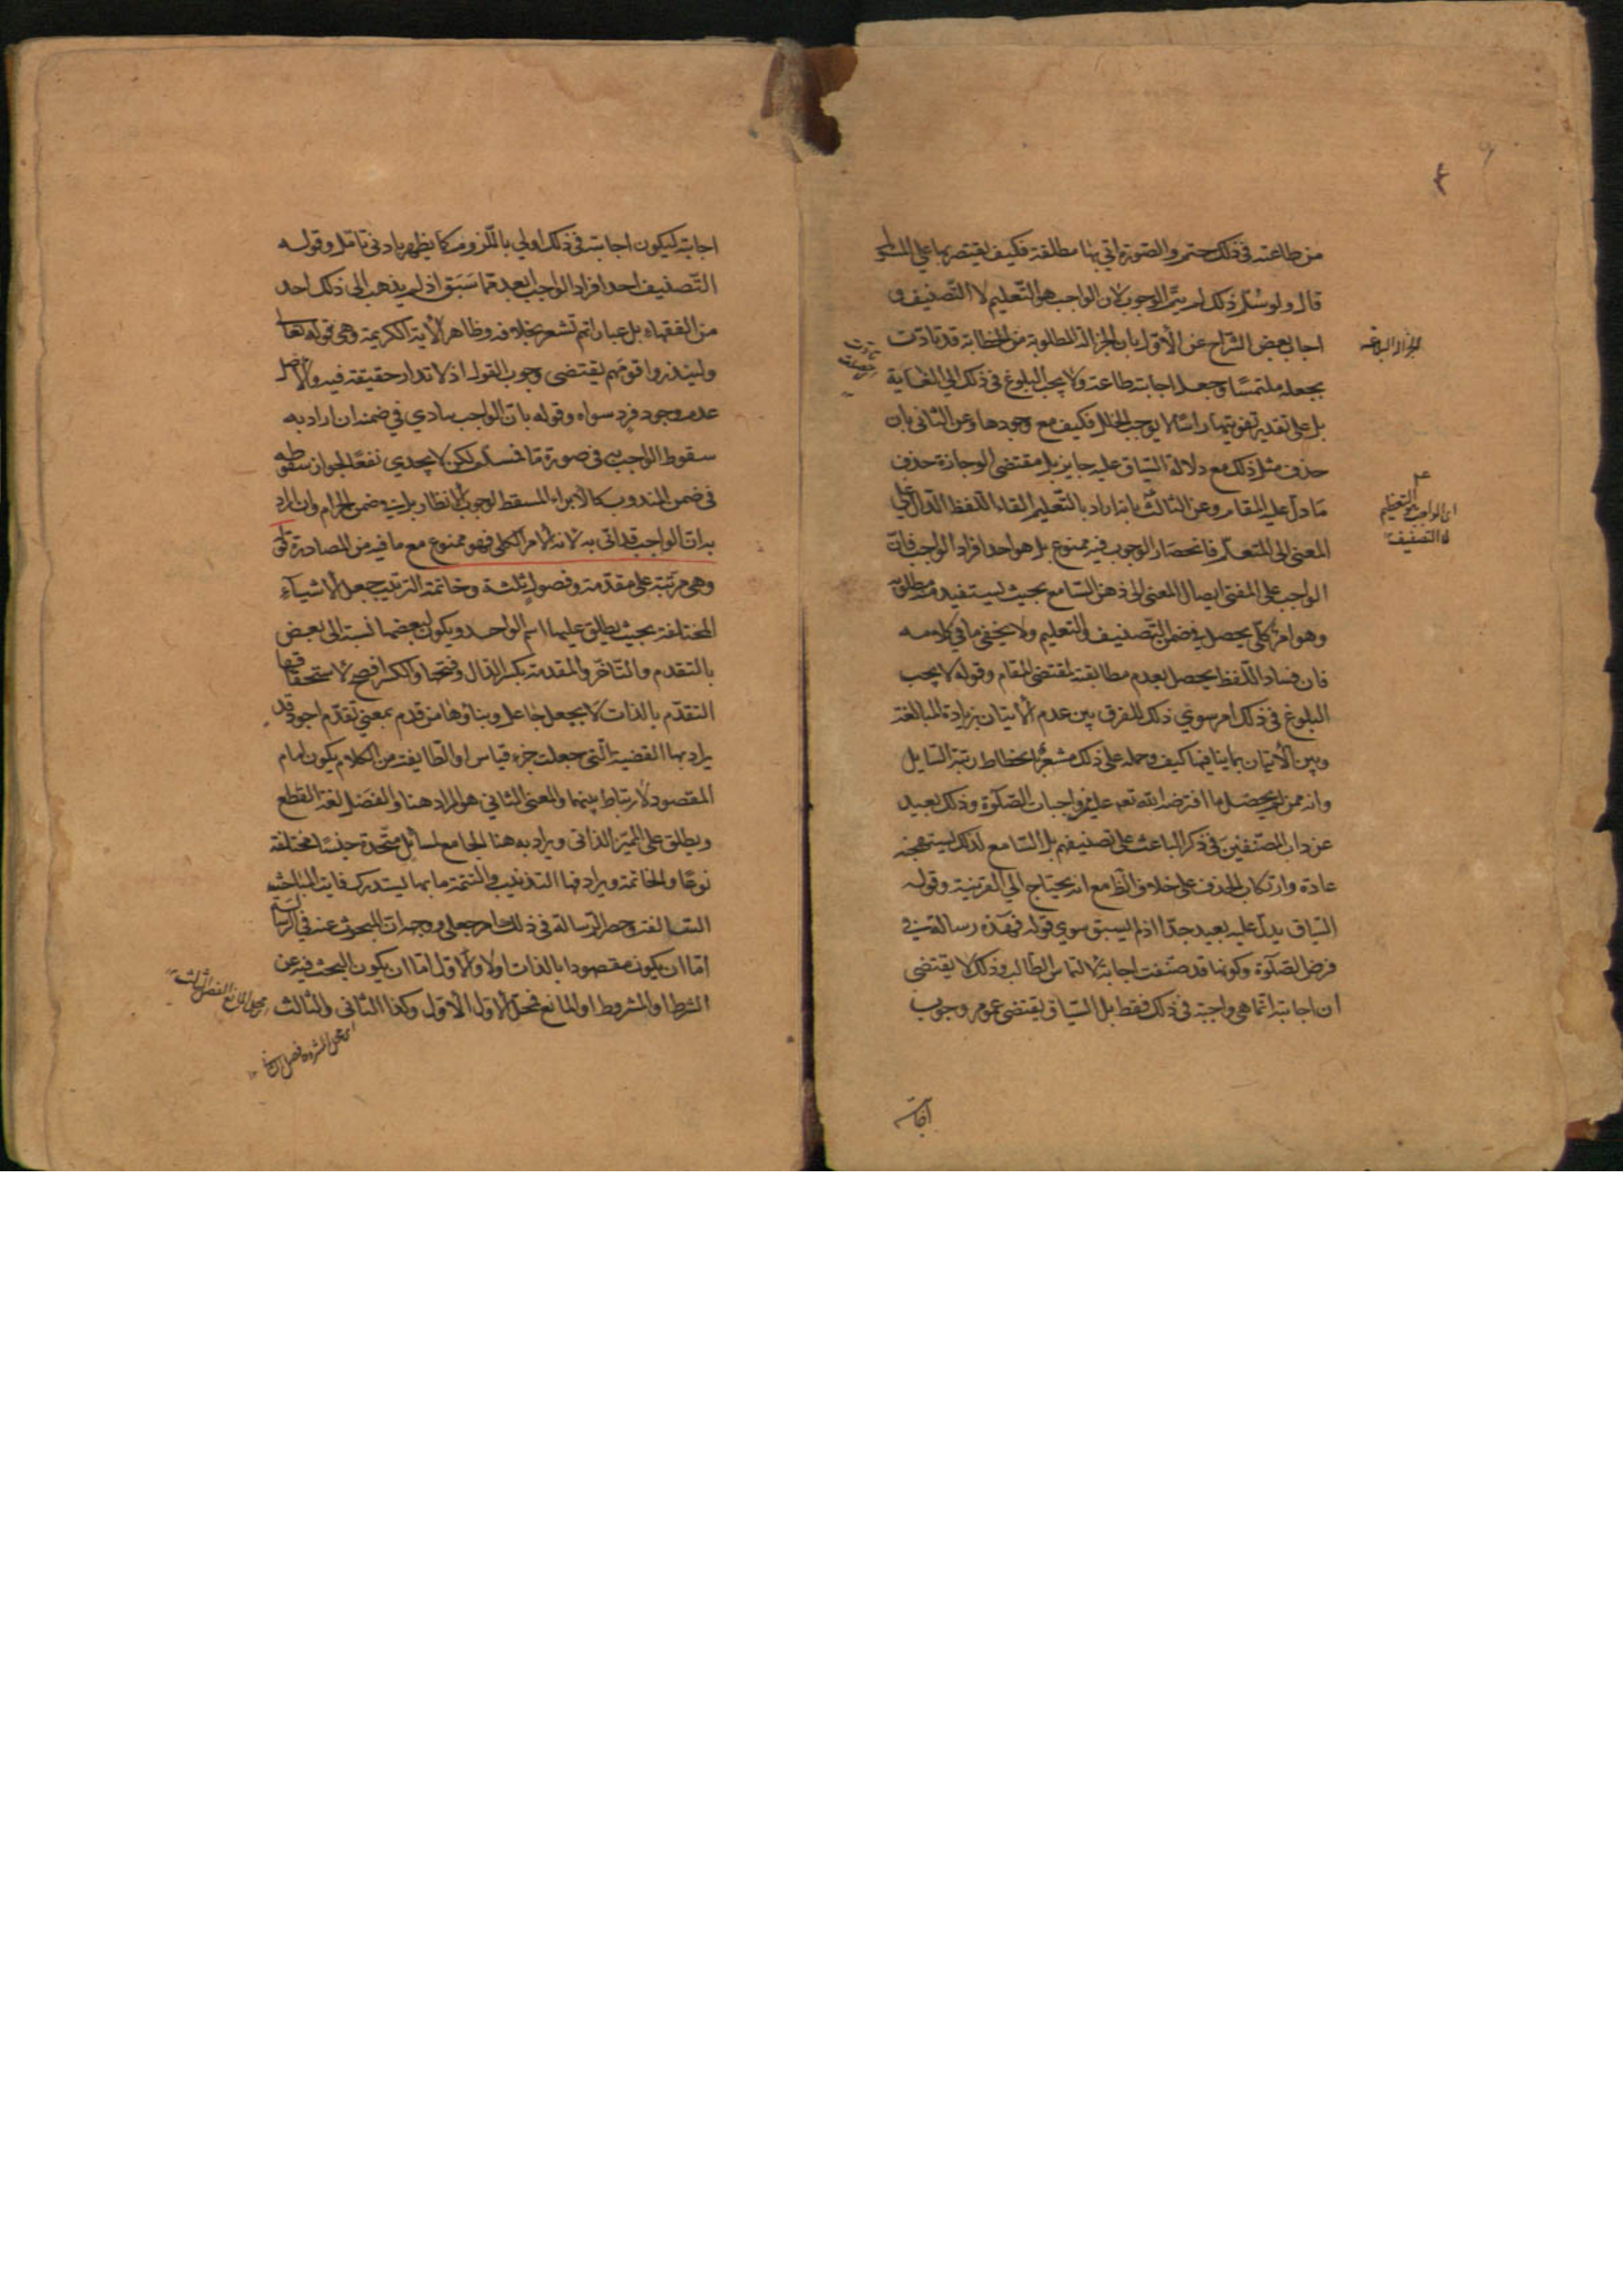 من طاعته في ذلك حتم والصورة اتي بها مطلقة فكيف يقتصر بها على
قال ولو سلم ذلك لم يتم الوجوب لان الواجب هو التعليم لا التصنيف و
اجاب بعض الشراح عن الاول بان الجزالة المطلوبة من الخطابة قد تادت
بجعله ملتمسا وجعل اجابته طاعة ولا يجب البلوغ في ذلك الي الغاية
بل على تقدير تفويتها راسا لا يوجب الخلل فكيف مع وجودها وعن الثاني بان
حذف مثل ذلك مع دلالة السياق عليه جايز بل مقتضى الوجازة حذف
ما دل عليه المقام وعن الثالث بانه اراد بالتعليم القاء اللفظ الدال على
المعنى الى المتعلم فانحصار الوجوب فيه ممنوع بل هو احد افراد الواجب فان
الواجب على المفتي ايصال المعنى الى ذهن السامع بحيث يستفيد منه مطلوبه
وهو امر كلي يحصل في ضمن التصنيف والتعليم ولا يخفى ما في كلامه
فان فساد اللفظ يحصل بعدم مطابقته لمقتضى المقام وقوله لا يجب
البلوغ في ذلك امر سوي ذلك للفرق بين عدم الاتيان بزيادة المبالغة
وبين الاتيان بما ينافيها كيف وحمله على ذلك مشعر بانحطاط رتبة السايل
وانه ممن لم يحصل ما افترضه الله تعالى عليه من واجبات الصلوة وذلك بعيد
عن داب المصنفين في ذكر الباعث على تصنيفهم بل السامع لذلك يستهجنه
عادة وارتكاب الحذف على خلاف الظ مع انه يحتاج الي القرينة وقوله
السياق يدل عليه بعيد جدا اذ لم يسبق سوي قوله فهذه رسالة في
فرض الصلوة وكونها قد صنفت اجابة لالتماس الطالب وذلك لا يقتضى
ان اجابته انما هي واجبة في ذلك فقط بل السياق يقتضى عموم وجوب
اجابته
اي الواجب هو التعليم
لا التصنيف
اجابته ليكون اجابته في ذلك اولي باللزوم كما يظهر بادنى تامل وقوله
التصنيف احد افراد الواجب ابعد مما سبق اذ لم يذهب الى ذلك احد
من الفقهاء بل عباراتهم تشعر بخلافه وظاهر الآية الكريمة وهي قوله تعالى
ولينذروا قومهم يقتضى وجوب القول اذ الانذار حقيقة فيه والاصل
عدم وجود فرد سواه وقوله بان الواجب يتادي في ضمنه ان اراد به
سقوط الواجب به في صورة ما فمسلم لكن لا يجدي نفعا لجواز سقوطه
في ضمن المندوب كالابراء المسقط لوجوب الانظار بل في ضمن الحرام وان اراد
به ان الواجب قد اتى به لانه الامر الكلي فهو ممنوع مع ما فيه من المصادرة قوله
وهي مرتبة على مقدمة وفصول ثلثة وخاتمة الترتيب جعل الاشياء
المختلفة بحيث يطلق عليها اسم الواحد ويكون لبعضها نسبة الى بعض
بالتقدم والتاخر والمقدمة بكسر الدال وفتحها والكسر افصح لاستحقاقها
التقدم بالذات لا بجعل جاعل وبناؤها من قدم بمعنى تقدم اجود قد
يراد بها القضية التي جعلت جزء قياس او الطايفة من الكلام يكون امام
المقصود لارتباط بينهما والمعنى الثاني هو المراد هنا والفصل لغة القطع
ويطلق على المميز الذاتي ويراد به هنا الجامع لمسائل متحدة جنسا مختلفة
نوعا والخاتمة ويرادفها التذنيب والتتمة ما بها يستدرك فايت المباحث
السالفة وحصر الرسالة في ذلك جعلي ووجه ان المبحوث عنه في الرسالة
اما ان يكون مقصودا بالذات اولا والاول اما ان يكون البحث فيه عن
الشرط او المشروط او المانع فمحل الاول الاول وكذا الثاني والثالث
محل المانع الفصل الثالث